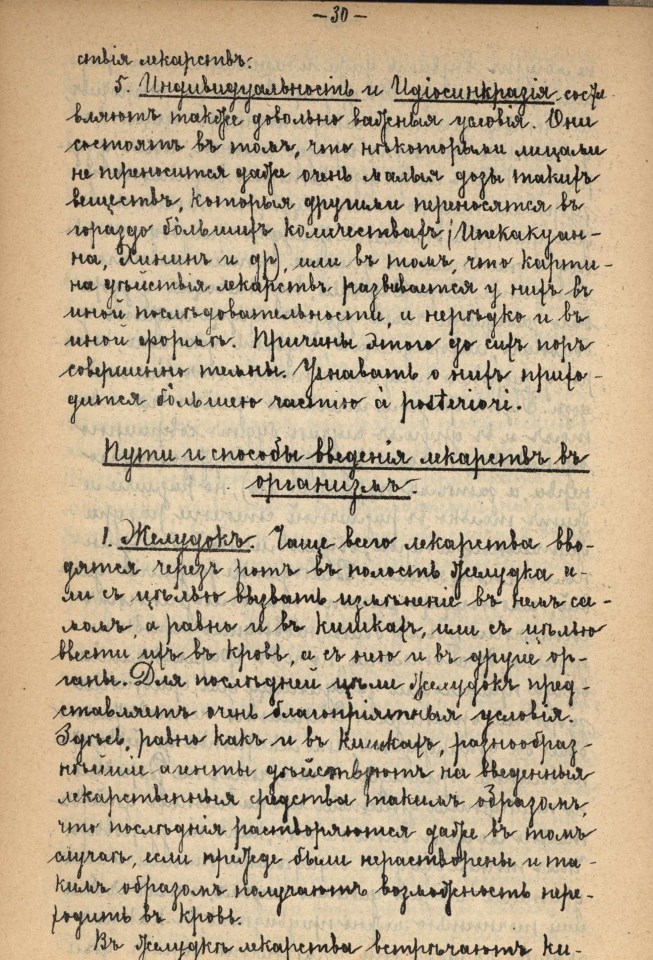 —30—
ствія лекарствъ.
5. Индивидуальность и Идіосинкразія соста
вляютъ также довольно важныя условія. Они
состоятъ въ томъ, что нѣкоторыми лицами
не переносится даже очень малыя дозы такихъ
веществъ, которыя другими переносятся въ
гораздо бо́льшихъ количествахъ (Ипекакуан-
на, Хининъ и др), или въ томъ, что карти-
на дѣйствія лекарствъ развивается у нихъ въ
иной послѣдовательности, и нерѣдко и въ
иной формѣ. Причины этого до сихъ поръ
совершенно темны. Узнавать о нихъ прихо-
дится бо́льшею частью à posteriori.
Пути и способы введенія лекарствъ въ
организмъ.
1. Желудокъ. Чаще всего лекарства вво-
дятся черезъ ротъ въ полость желудка и-
ли съ цѣлью вызвать измѣненіе въ немъ са-
момъ, а равно и въ кишкахъ, или съ цѣлью
ввести ихъ въ кровь, а съ нею и въ другіе ор-
ганы. Для послѣдней цѣли желудокъ пред-
ставляетъ очень благопріятныя условія.
Здѣсь, равно какъ и въ кишкахъ, разнообраз-
нѣйшіе агенты дѣйствуютъ на введенныя
лекарственныя средства такимъ образомъ,
что послѣднія растворяются даже въ томъ
случаѣ, если прежде были нерастворены и та-
кимъ образомъ получаютъ возможность пере-
ходить въ кровь.
Въ желудкѣ лекарства встрѣчаютъ ки-